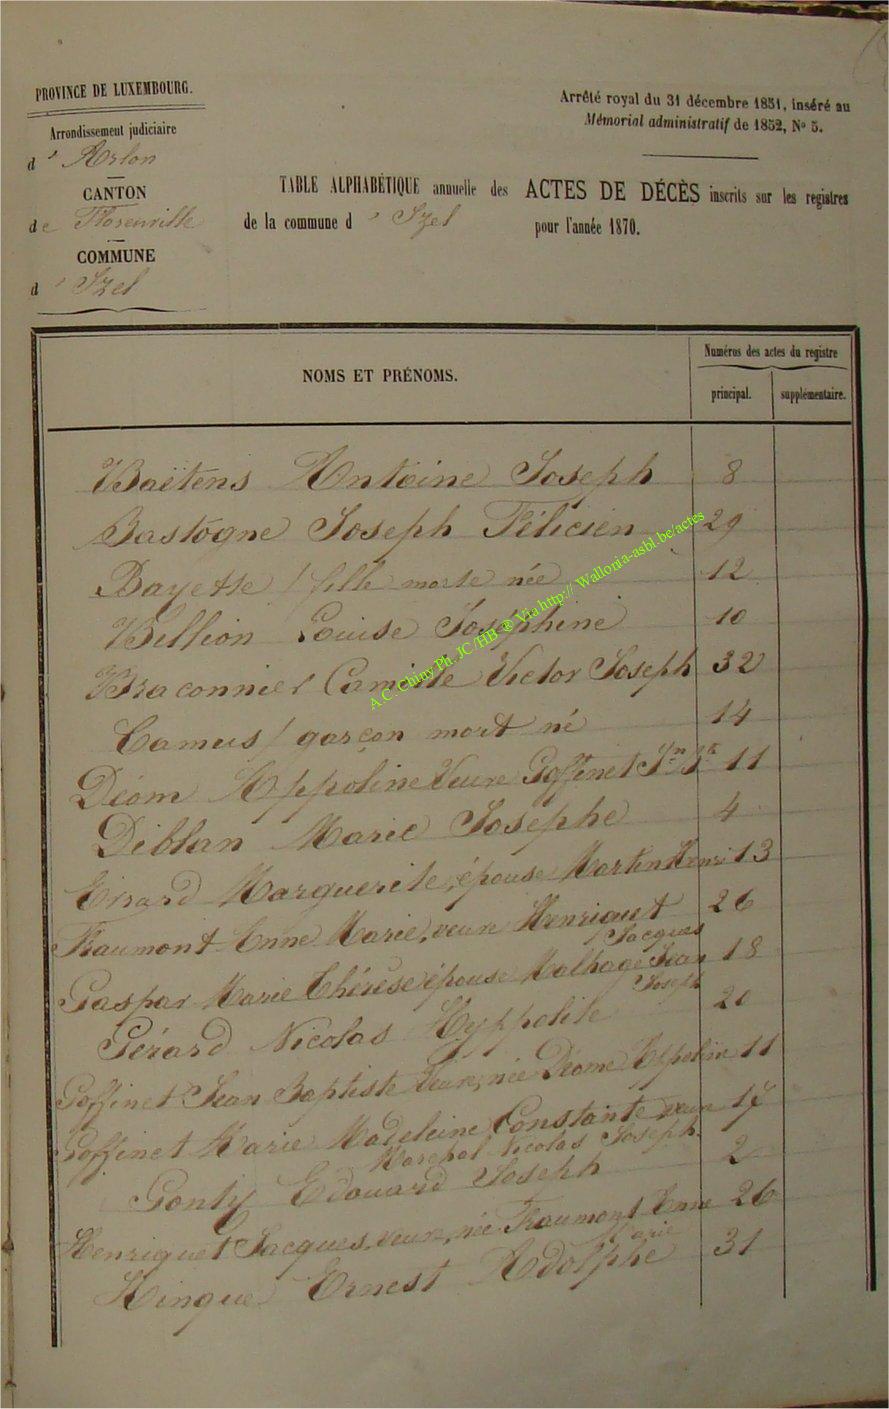 PROVINCE DE LUXEMBOURG.
Arrondissement judiciaire
d' Arlon
CANTON
de Florenville
COMMUNE
d' Izel
Arrêté royal du 31 décembre 1851, inséré au
Mémorial administratif de 1852, No 5.
TABLE ALPHABÉTIQUE annuelle des ACTES DE DÉCÈS inscrits sur les registres
de la commune d' Izel pour l'année 1870.
NOMS ET PRÉNOMS.
Numéros des actes du registre
principal. supplémentaire.
Baëtens Antoine Joseph 8
Bastogne Joseph Félicien 29
Bayette / fille morte née 12
Billion Louise Joséphine 10
Braconnier Camille Victor Joseph 32
Camus / garçon mort né 14
Déom Appoline Veuve Goffinet Jn Bte 11
Diblan Marie Josephe 4
Errard Marguerite, épouse Martin Henri 13
Fraumont Anne Marie, veuve Henriquet 26
Jacques
Gaspar Marie Thérèse épouse Malhage Jean 18
Joseph
Gérard Nicolas Hyppolite 20
Goffinet Jean Baptiste Veuve, née Déome Appoline 11
Goffinet Marie Madeleine Constante veuve 17
Nicolas Joseph.
Gonty Edouard Joseph 2
Henriquet Jacques, veuve, née Fraumont Anne 26
Marie
Hinque Ernest Adolphe 31
A.C. Chiny Ph. JC/HB ® Via http:// Wallonia-asbl.be/actes